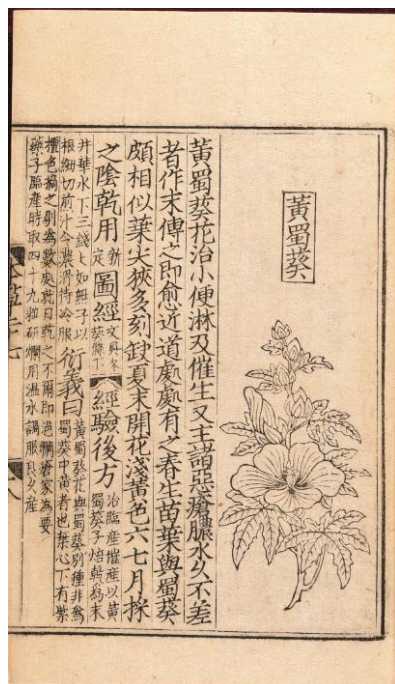 黃蜀葵
黃蜀葵花治小便淋及催生又主諸惡瘡膿水久不差
者作末傅之即愈近道處處有之春生苗葉與蜀葵
頗相似葉尖狹多刻缺夏末開花淺黃色六七月採
之陰乾用新定圖經文具冬葵條下經驗後方治臨產催產以黃蜀葵子焙乾為末
井華水下三錢匕如無子以根細切煎汁令濃滑待冷服衍義曰黃蜀葵花與蜀葵別種非為蜀葵中黃者也葉心下有紫
檀色摘之剔為數處就日乾之不爾即浥爛瘡家為要藥子臨產時取四十九粒研爛用溫水調服良久產
本草